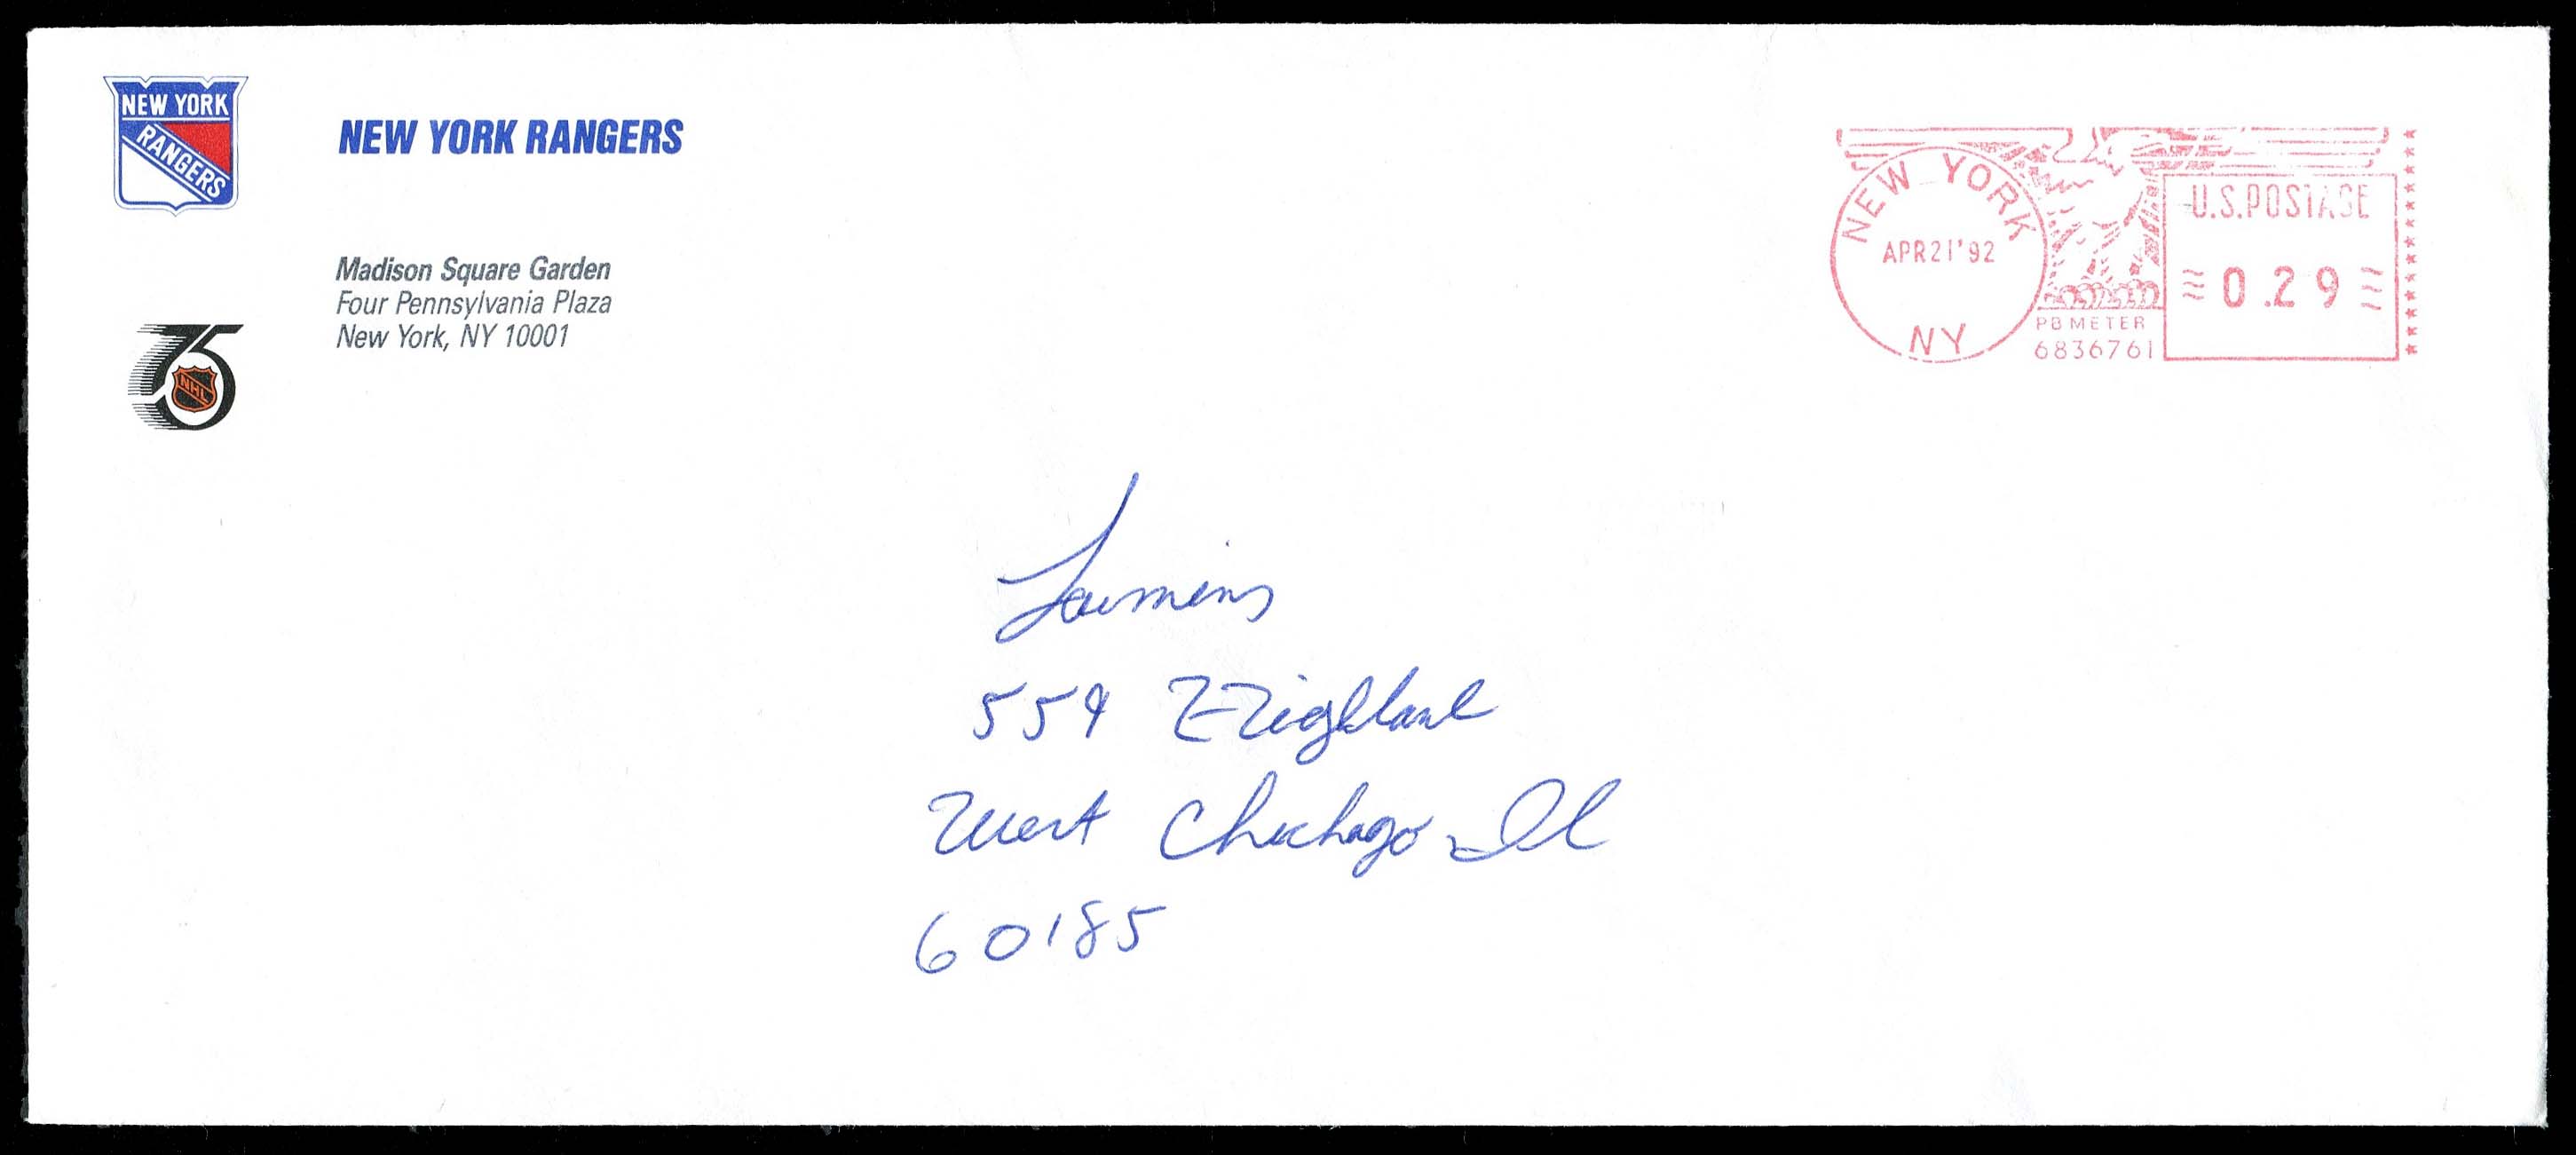 NEW YORK
RANGERS
NEW YORK RANGERS
Madison Square Garden
Four Pennsylvania Plaza
New York, NY 10001
75
NHL
NEW YORK
APR 21 '92
NY
PB METER
6836761
U.S. POSTAGE
0.29
559
West Chichago Ill
60185